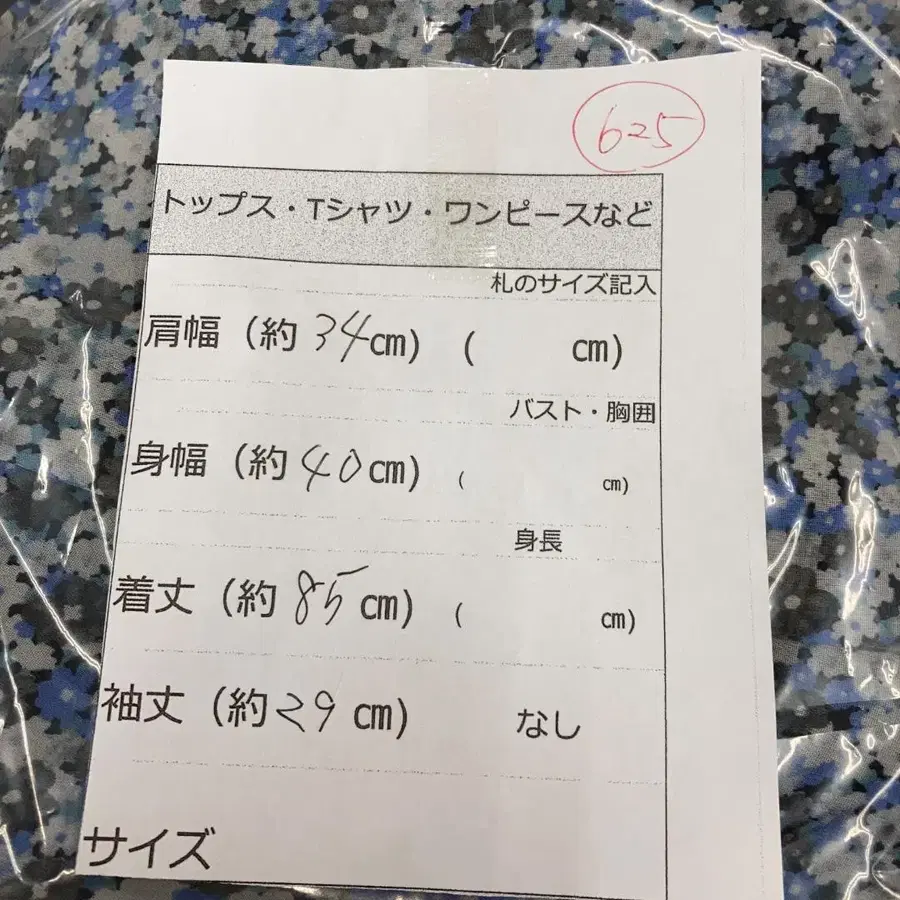 625
トップス・Tシャツ・ワンピースなど
札のサイズ記入
肩幅（約34cm）（　　　cm）
バスト・胸囲
身幅（約40cm）（　　　cm）
身長
着丈（約85cm）（　　　cm）
袖丈（約29cm）　　なし
サイズ